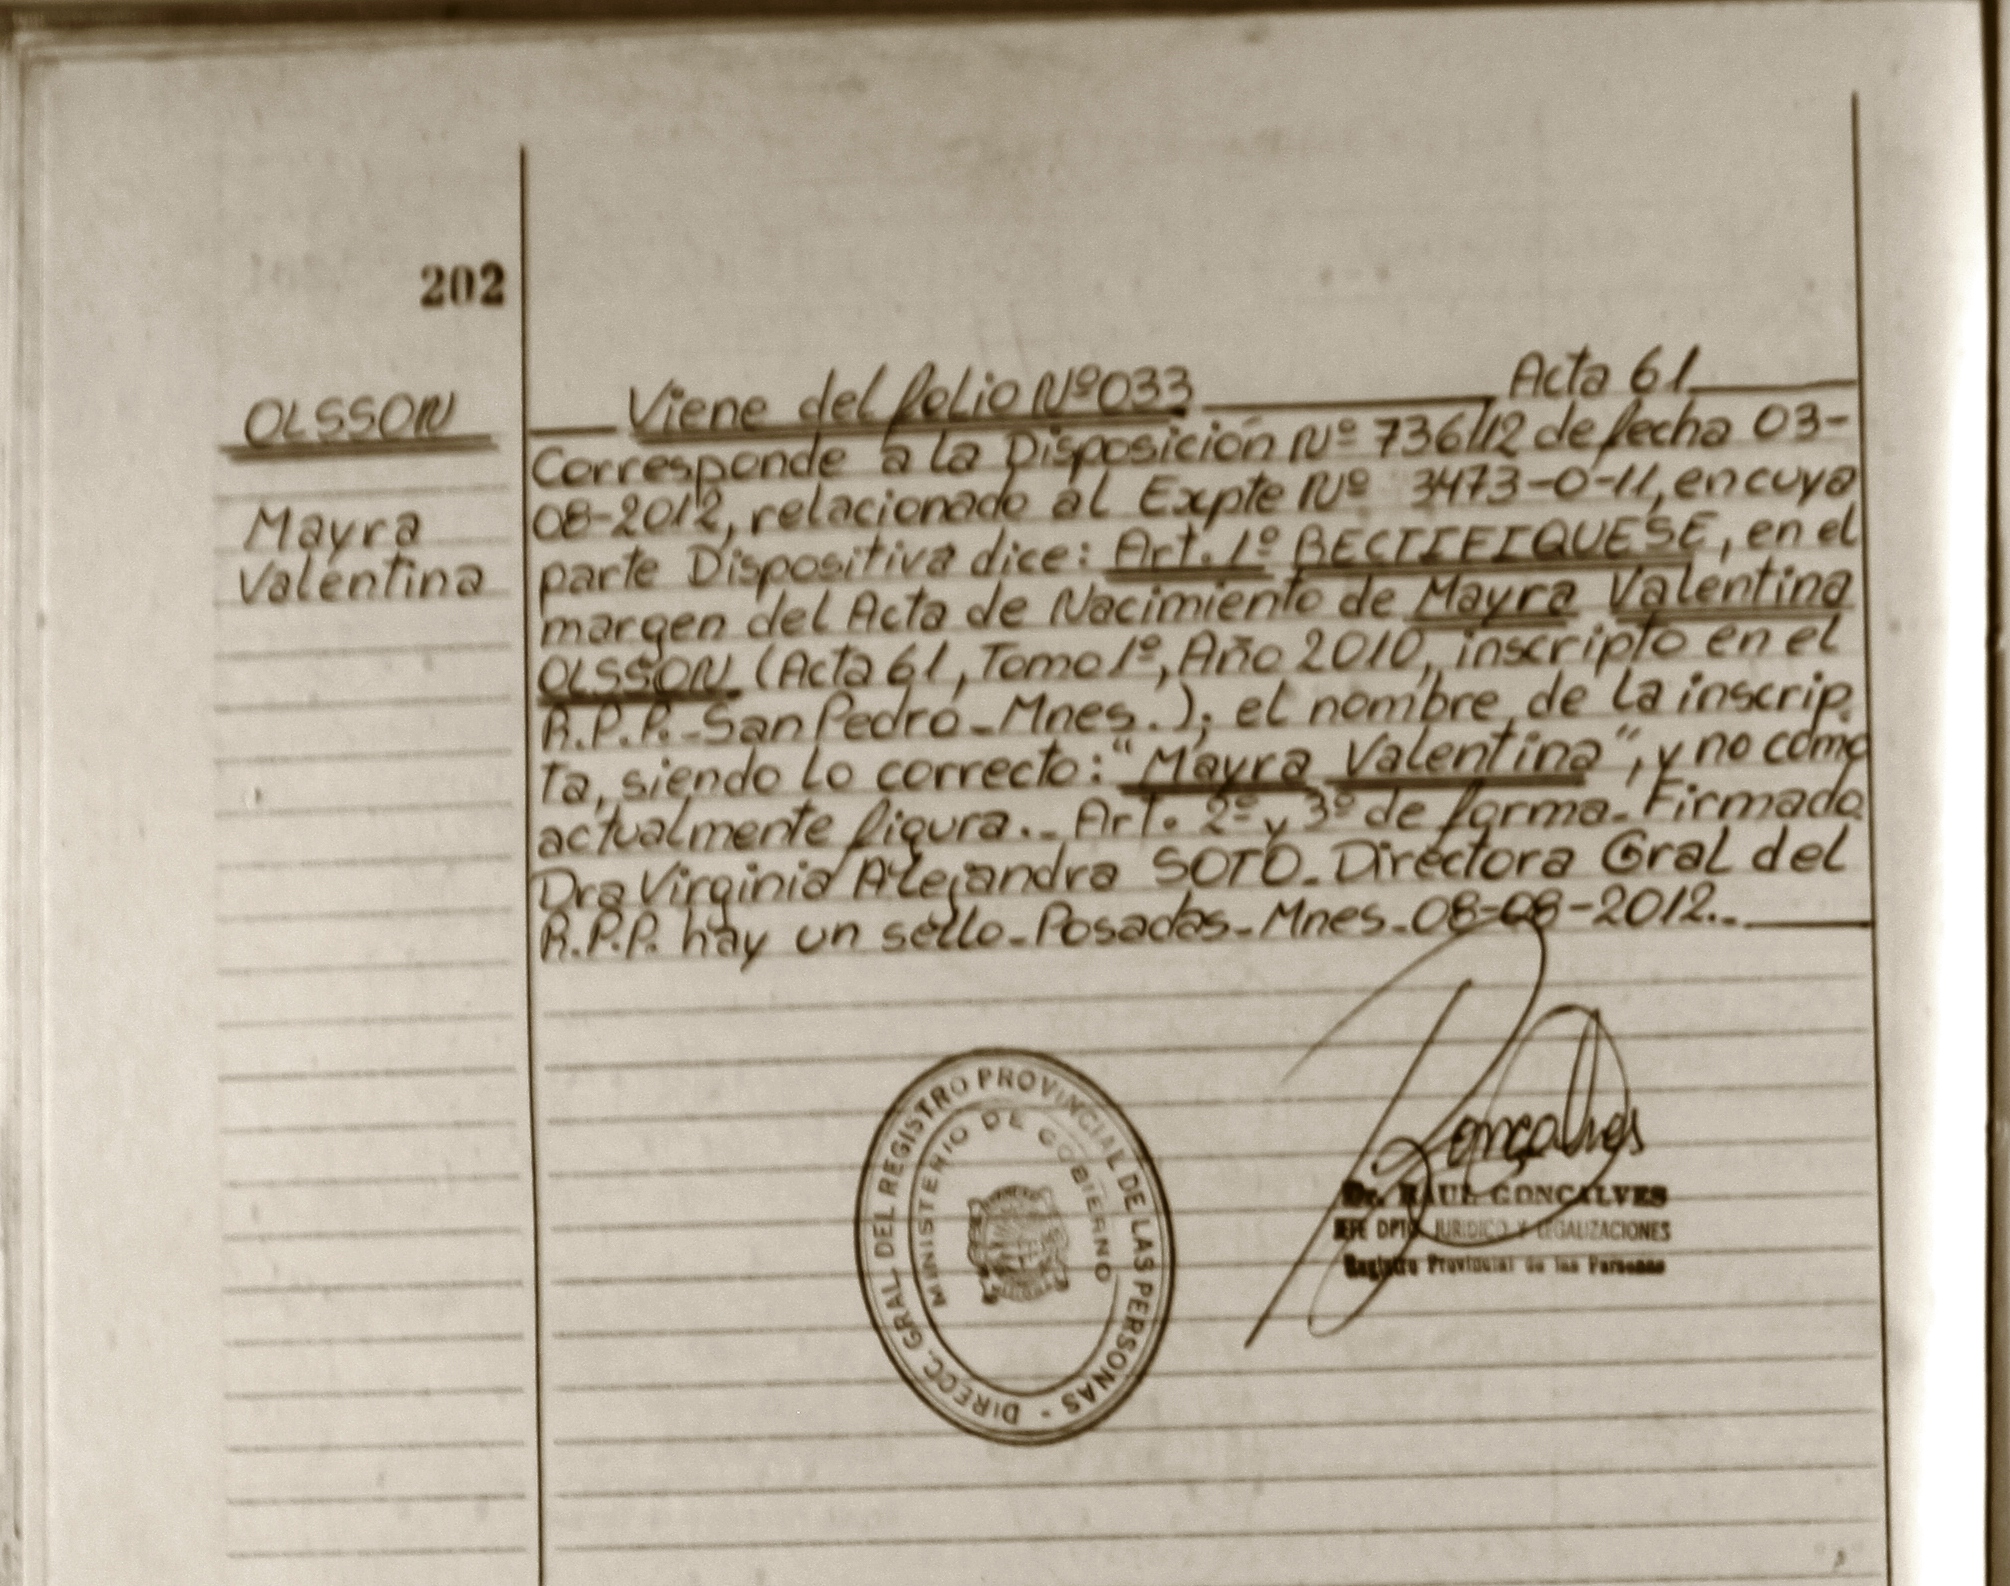 202
OLSSON
Mayra
Valentina
Viene del folio Nº033 Acta 61
Corresponde a la Disposición Nº 736/12 de fecha 03-
08-2012, relacionado al Expte Nº 3473-0-11, en cuya
parte Dispositiva dice: Art. 1º RECTIFIQUESE, en el
margen del Acta de Nacimiento de Mayra Valentina
OLSSON (Acta 61, Tomo 1º, Año 2010, inscripto en el
R.P.P.-San Pedro-Mnes.); el nombre de la inscrip.
ta, siendo lo correcto: "Mayra Valentina", y no como
actualmente figura.- Art. 2º y 3º de forma. Firmado
Dra Virginia Alejandra SOTO. Directora Gral del
R.P.P. hay un sello-Posadas-Mnes-08-08-2012.-
DIRECC. GRAL DEL REGISTRO PROVINCIAL DE LAS PERSONAS -
MINISTERIO DE GOBIERNO
Gonçalves
Dr. RAUL GONCALVES
JEFE DPTO JURIDICO Y LEGALIZACIONES
Registro Provincial de las Personas